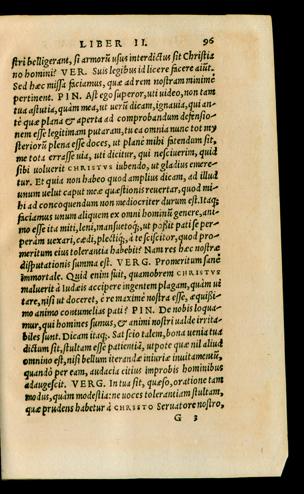 LIBER II. 96
stri belligerant, si armorũ usus interdictus sit Christia
no homini? VER. Suis legibus id licere facere aiũt.
Sed hæc missa faciamus, quæ ad rem nostram minimè
pertinent. PIN. Ast ego superor, uti uideo, non tam
tua astutia, quàm mea, ut uerũ dicam, ignauia, qui an-
tè quæ plana & aperta ad comprobandum defensio-
nem esse legitimam putaram, tu ea omnia nunc tot my
steriorũ plena esse doces, ut planè mihi fatendum sit,
me tota errasse uia, uti dicitur, qui nesciuerim, quid
sibi uoluerit CHRISTVS iubendo, ut gladius emere-
tur. Et quia non habeo quod amplius dicam, ad illud
unum uelut caput meæ quæstionis reuertar, quod mi-
hi ad concoquendum non mediocriter durum est. Itaq;
faciamus unum aliquem ex omni hominũ genere, ani-
mo esse ita miti, leni, mansuetoq;, ut possit patise per-
peràm uexari, cædi, plectiq;, à te sciscitor, quod pro-
meritum eius tolerantia habebit? Nam res hæc nostræ
disputationis summa est. VERG. Promeritum sanè
immortale. Quid enim fuit, quamobrem CHRISTVS
maluerit à Iudæis accipere ingentem plagam, quàm ui
tare, nisi ut doceret, è re maximè nostra esse, æquissi-
mo animo contumelias pati? PIN. De nobis loqua-
mur, qui homines sumus, & animi nostri ualde irrita-
biles sunt. Dicam itaq;. Sat scio talem, bona uenia tua
dictum sit, stultam esse patientiã, utpote quæ nil aliud
omnino est, nisi bellum iterandæ iniuriæ inuitamentũ,
quandò per eam, audacia citius improbis hominibus
adaugescit. VERG. In tua sit, quæso, oratione tam
modus, quàm modestia: ne uoces tolerantiam stultam,
quæ prudens habetur à CHRISTO Seruatore nostro,
G 3